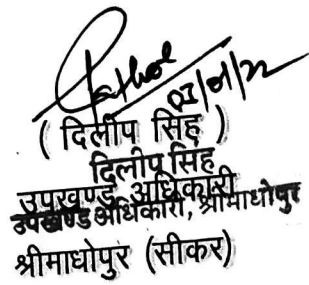 Rathol
03/01/22
( दिलीप सिंह )
दिलीप सिंह
उपखण्ड अधिकारी
उपखण्ड अधिकारी, श्रीमाधोपुर
श्रीमाधोपुर (सीकर)